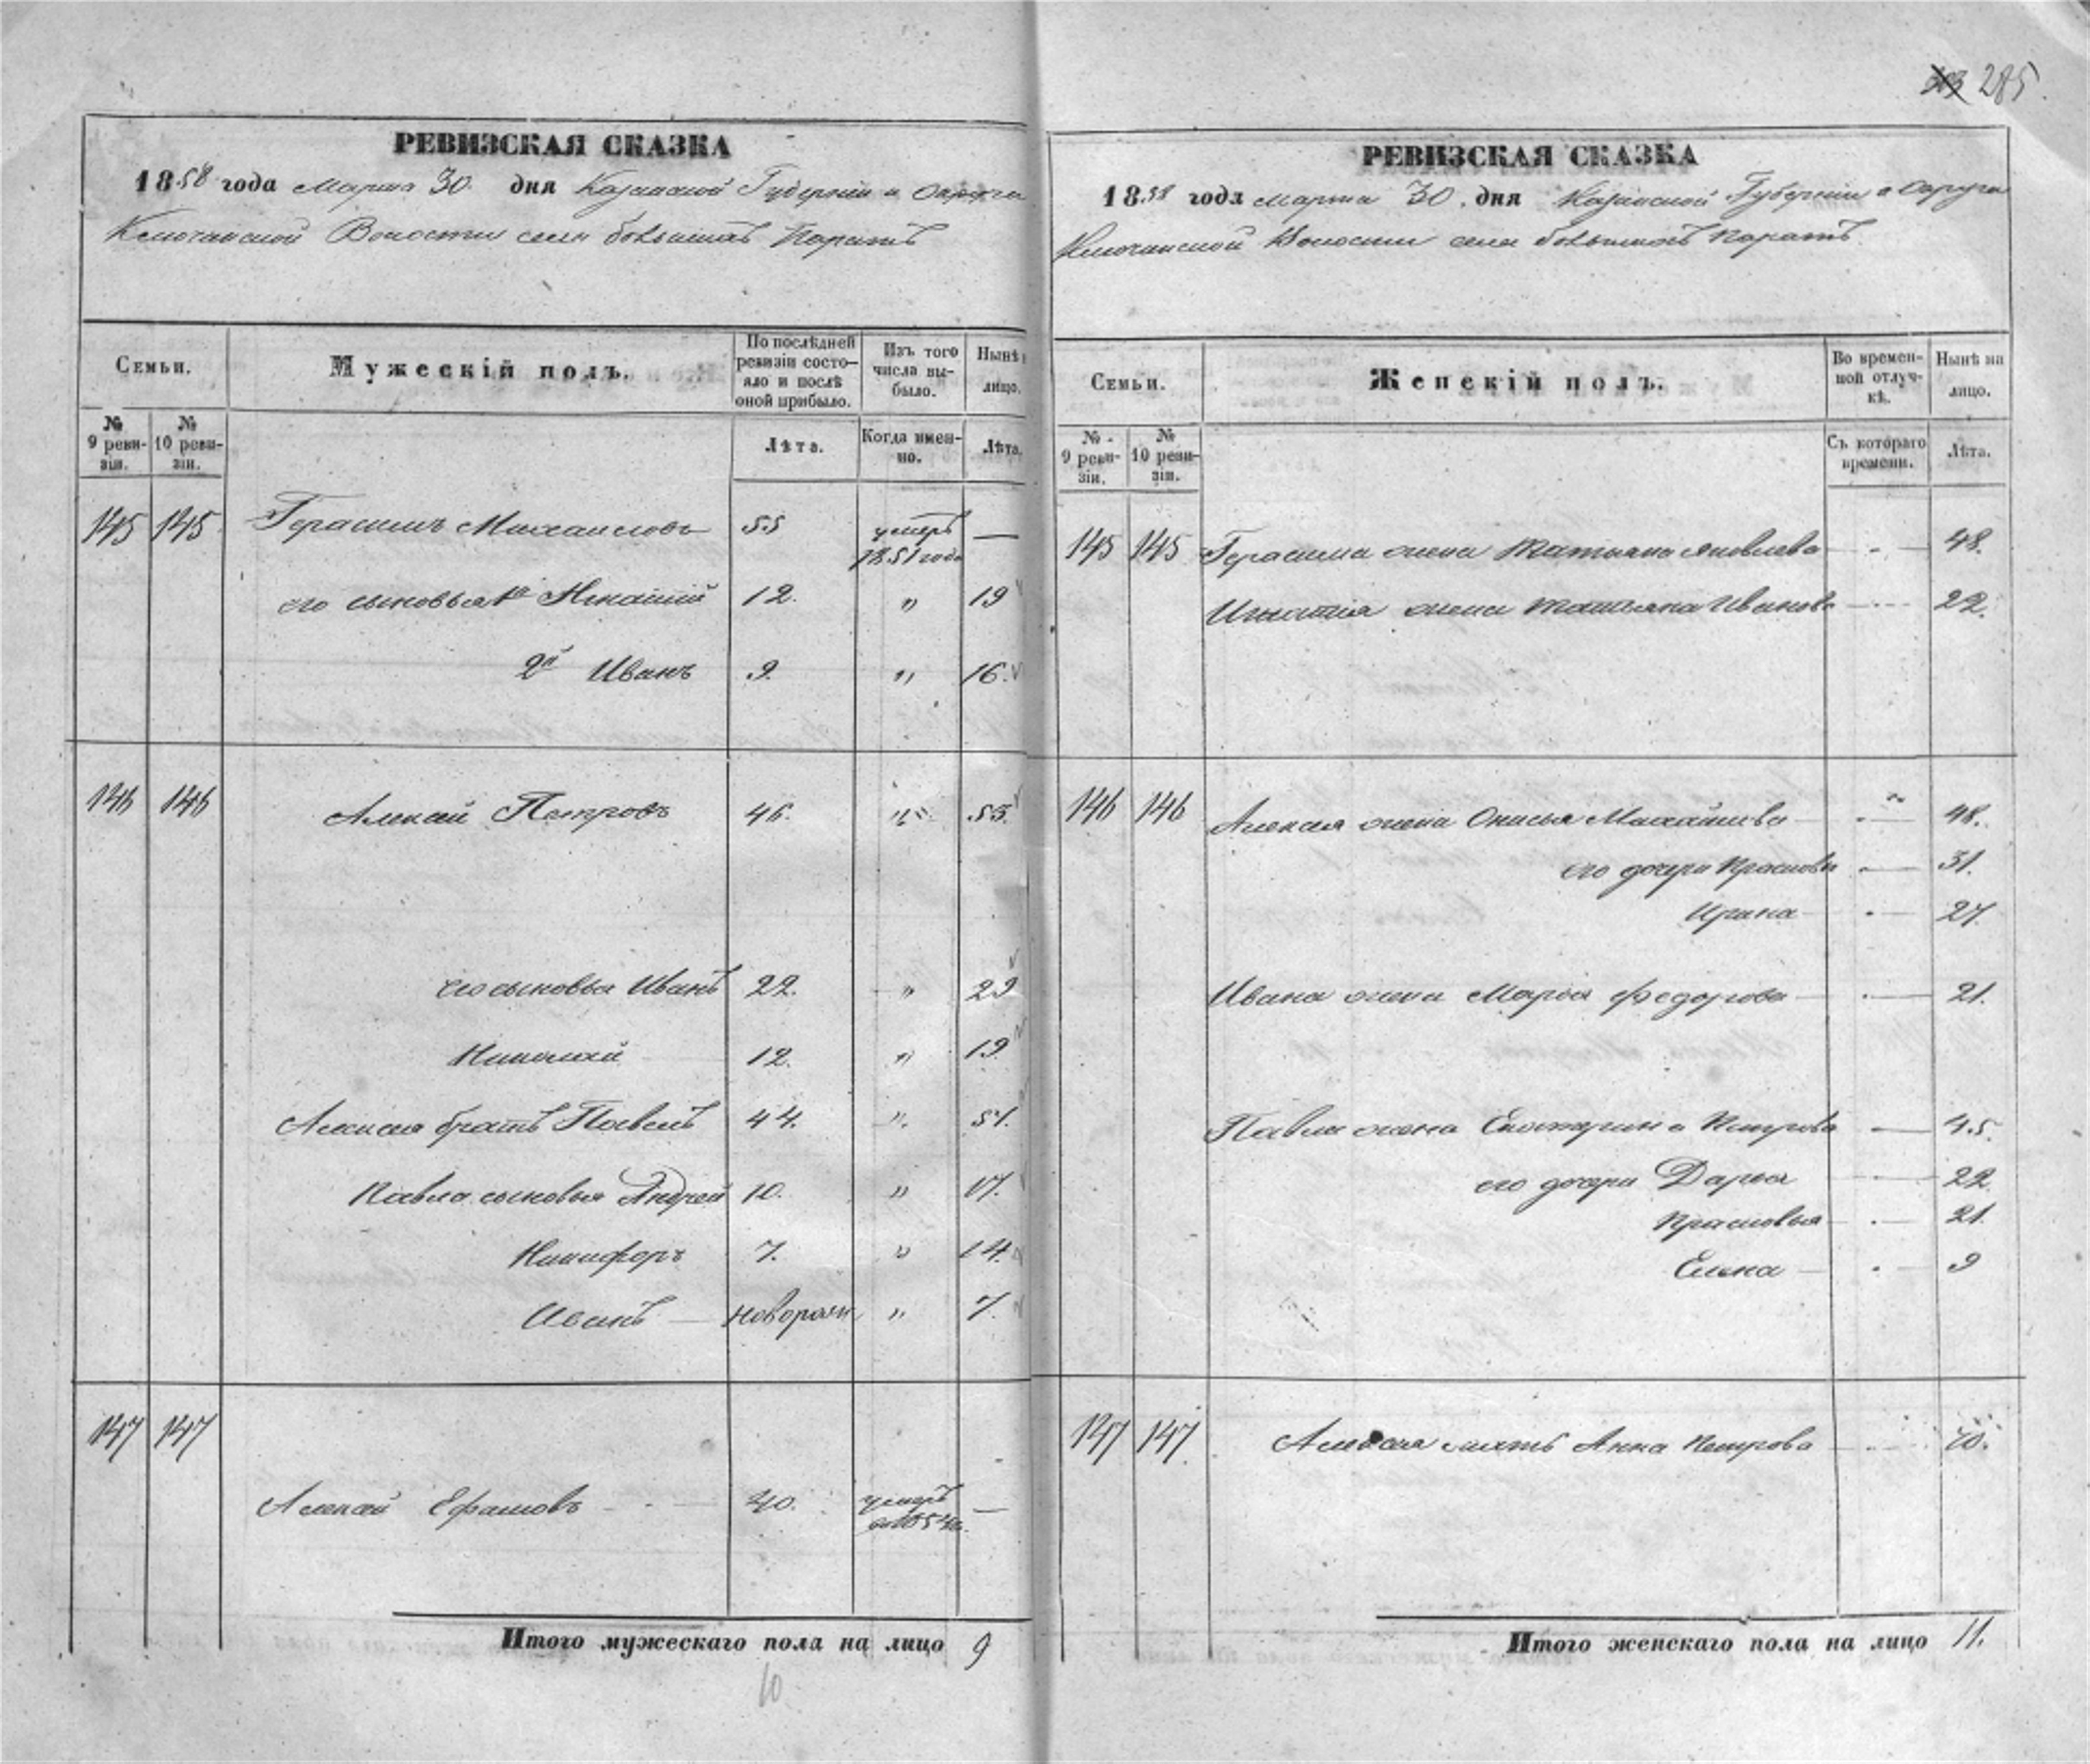 285.
РЕВИЗСКАЯ СКАЗКА
1858 года Марта 30. дня Казанской Губерніи и Округа
Ключинской Волости села большихъ Паратъ
Семьи.
Мужескій полъ.
По послѣдней ревизіи состояло и послѣ оной прибыло.
Изъ того числа выбыло.
Нынѣ
лицо.
№ 9 ревизіи.
№ 10 ревизіи.
Лѣта.
Когда именно.
Лѣта.
145 145 Герасимъ Михаиловъ 55 умеръ 1851 года —
его сыновья 1й Игнатій 12. „ 19
2й Иванъ 9. „ 16.
146 146 Алексей Петровъ 46. „ 53.
его сыновья Иванъ 22. „ 29
Николай 12. „ 19
Алексея братъ Павелъ 44. „ 51.
Павла сыновья Андрей 10. „ 17.
Никифоръ 7. „ 14.
Иванъ — новорож „ 7.
147 147
Алексей Ефимовъ 40. умеръ 1854 —
Итого мужескаго пола на лицо 9
10
РЕВИЗСКАЯ СКАЗКА
1858 года марта 30. дня Казанской Губерніи и Округа
Ключинской Волости села большихъ Паратъ.
Семьи.
Женскій полъ.
Во временной отлучкѣ.
Нынѣ на лицо.
№ 9 ревизіи.
№ 10 ревизіи.
Съ котораго времени.
Лѣта.
145 145 Герасима жена Татьяна Яковлева — 48.
Игнатія жена Татьяна Иванова — 22.
146 146 Алексея жена Онисья Михайлова — 48.
его дочери Прасковья — 31.
Ирина — 27.
Ивана жена Марья Федорова — 21.
Павла жена Екатерина Петрова — 45.
его дочери Дарья — 22.
Прасковья — 21.
Елена — 9
147 147. Алексея мать Анна Петрова — 70.
Итого женскаго пола на лицо 11.